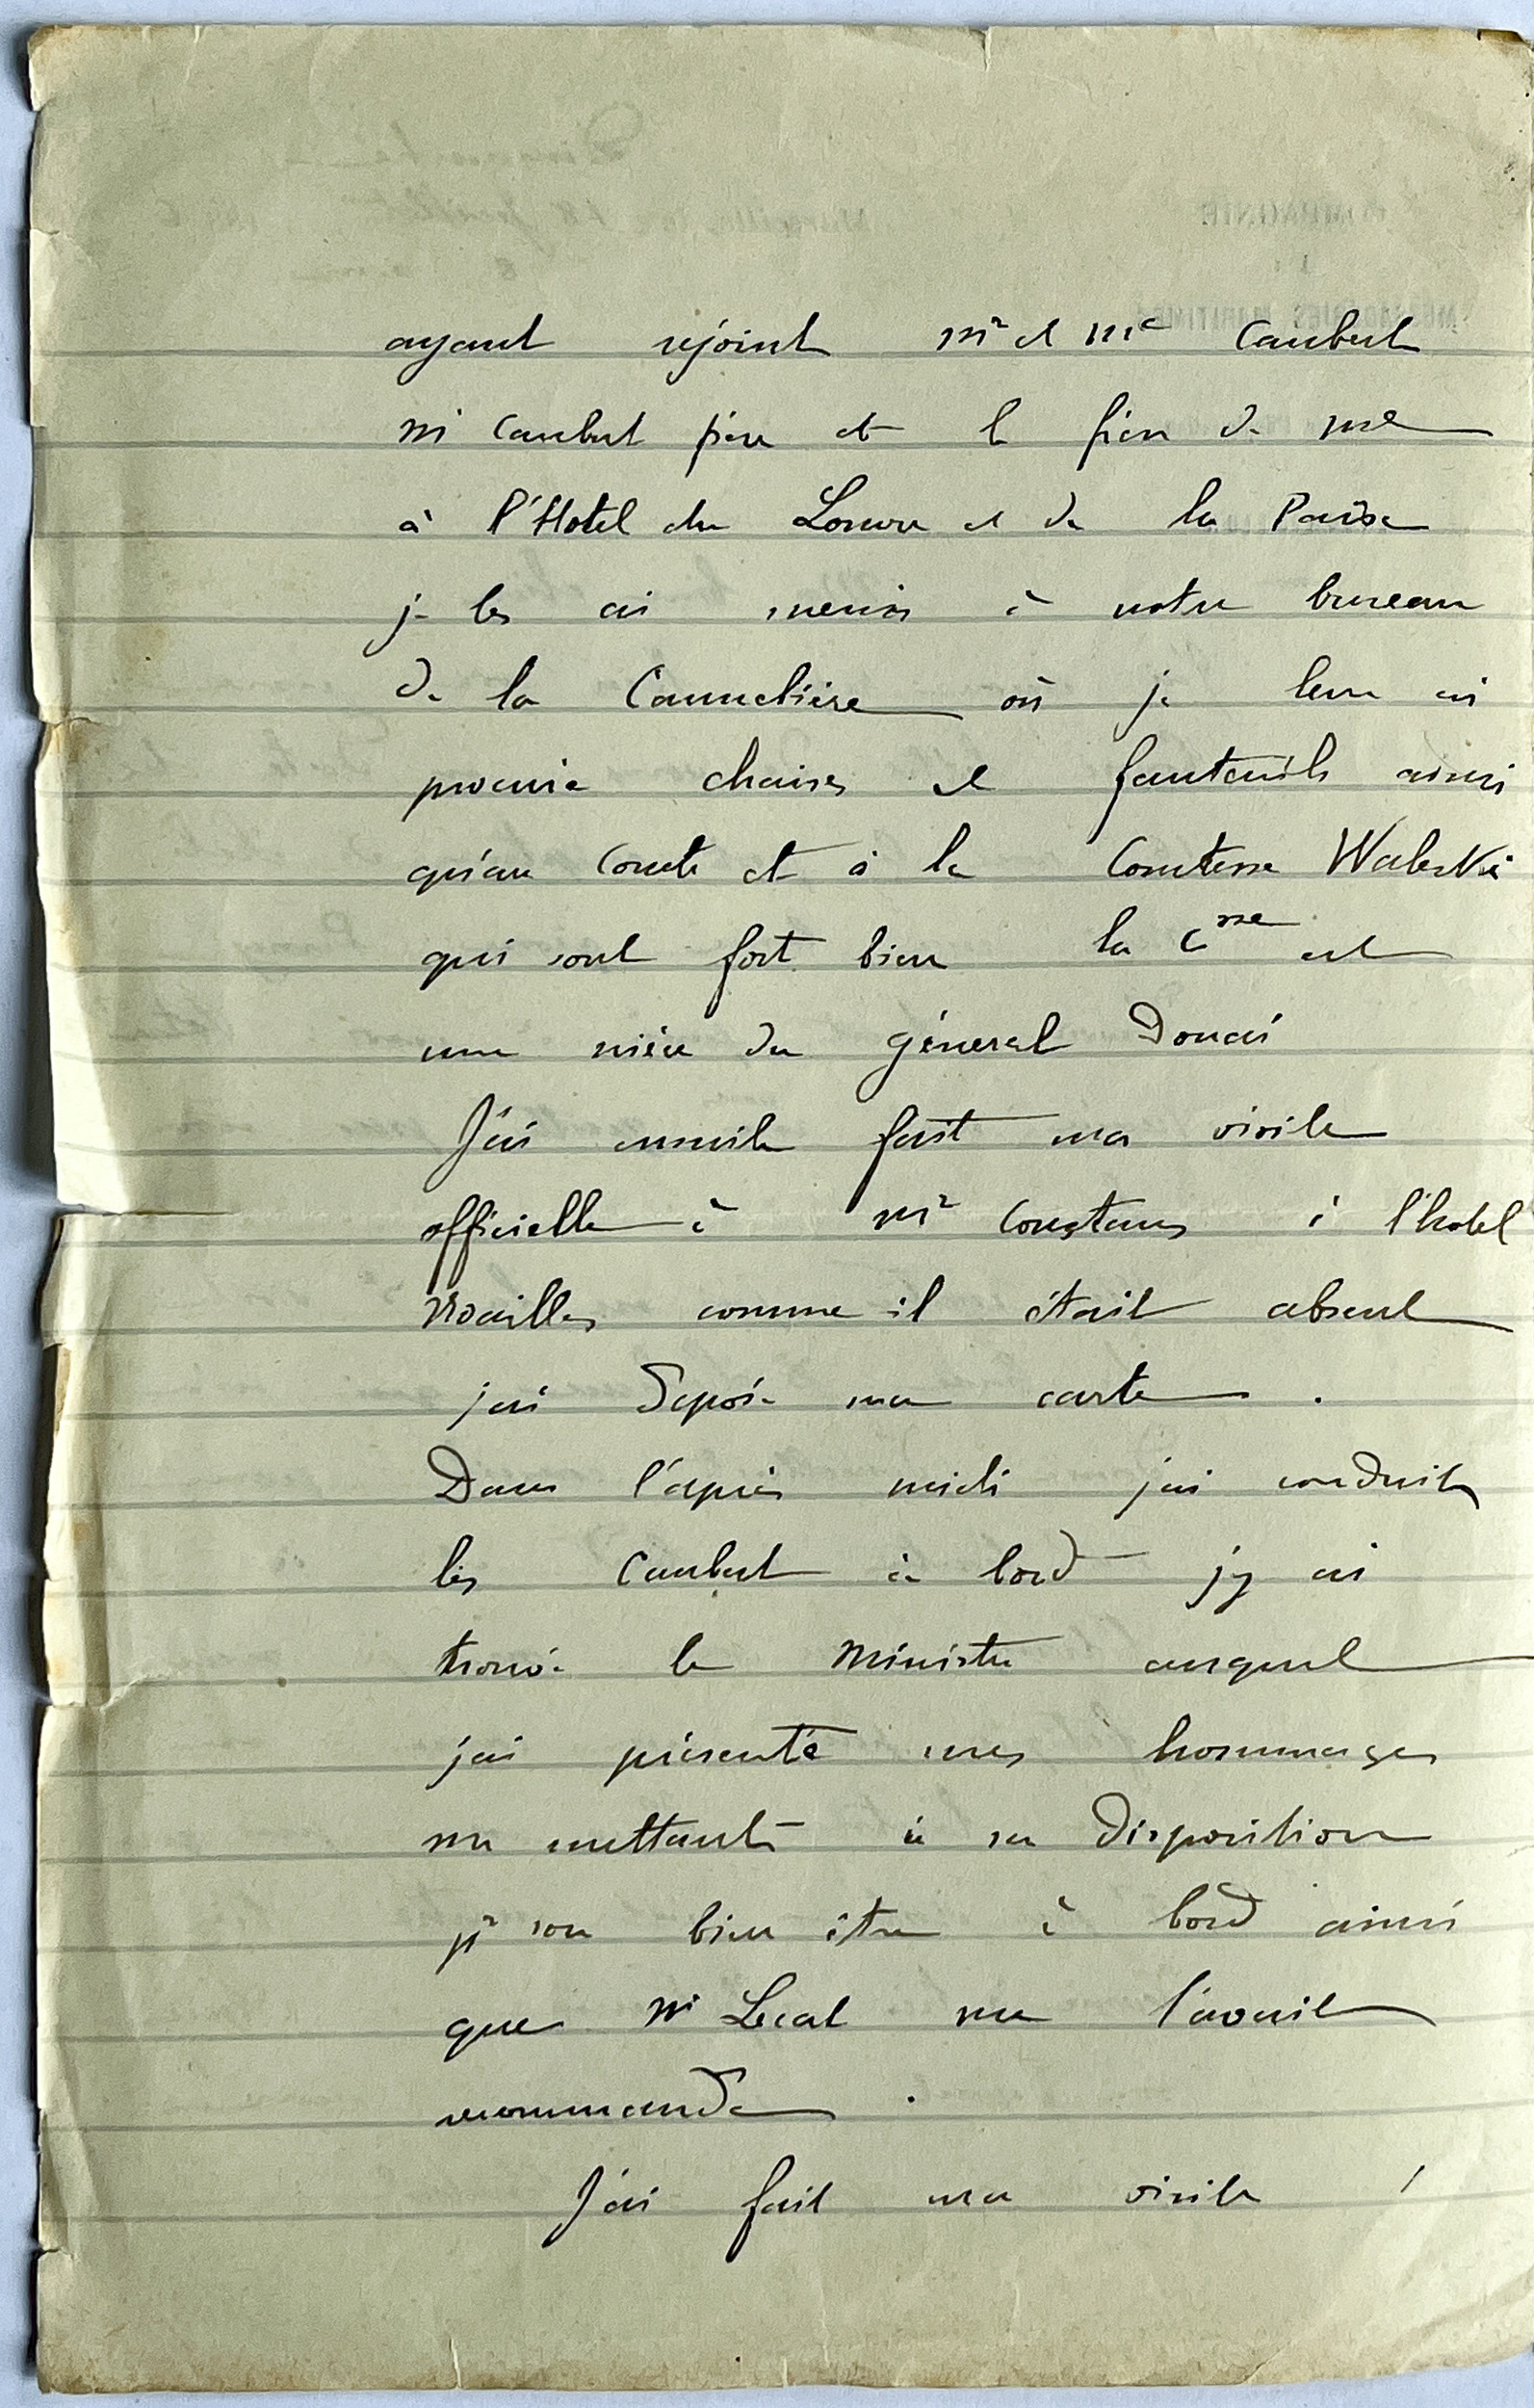 ayant rejoint Mr et Me Caubert
Mr Caubert père et le frère de Me
à l'Hotel du Louvre et de la Paix
je les ai menés à notre bureau
de la Cannebière où je leur ai
procuré chaises et fauteuils ainsi
qu'au Comte et à la Comtesse Waleski
qui sont fort bien la Csse est
une nièce du général Douai
J'ai ensuite fait ma visite
officielle à Mr Constans à l'hotel
Noailles comme il était absent
j'ai déposé ma carte.
Dans l'après midi j'ai conduit
les Caubert à bord j'y ai
trouvé le Ministre auquel
j'ai présenté mes hommages
me mettant à sa disposition
pr son bien être à bord ainsi
que Mr Lecat me l'avait
recommandé.
J'ai fait ma visite